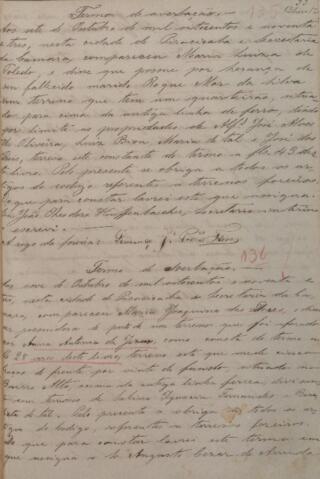 33
Termo de averbação.
Aos sete de Outubro de mil oitocentos e noventa
e tres, nesta cidade de Piracicaba e Secretaria
da Camara compareceu Maria Luiza de
Toledo, e disse que possue por herança de
seu fallecido marido Roque Mor da Silva
um terreno que tem um quarteirão, situa
do para cima da antiga linha de ferro, tendo
por limite as propriedades de José Alves
de Oliveira, Luiz Maria de tal e José dos
Reis, terreno este constante do termo a fls. 3 deste
Livro. Pelo presente se obriga a todos os ar
tigos do codigo referentes a terrenos foreiros.
E que para constar lavrei este que assigna.
Eu João Theodoro Secretario interino
escrevi.
A rogo da foreira:
136
Termo de Averbação.
Aos onze de Outubro de mil oitocentos e noventa e
tres, nesta cidade de Piracicaba e Secretaria da Ca
mara, compareceu Maria Joaquina das Dores, e disse
ser possuidora de um terreno que foi aforado
por Anna Antonia de Jesus, como consta do termo a
fls 28 verso deste livro, terreno este que mede
de frente por vinte de fundo, situado no
Bairro Alto, acima da antiga linha ferrea, divisan
do com terrenos de Sabina Fernandes e
de tal. Pelo presente se obriga a todos os ar
tigos do codigo, referentes a terrenos foreiros.
E que para constar lavrei este termo em
que assigna a Augusto Cezar de Arruda